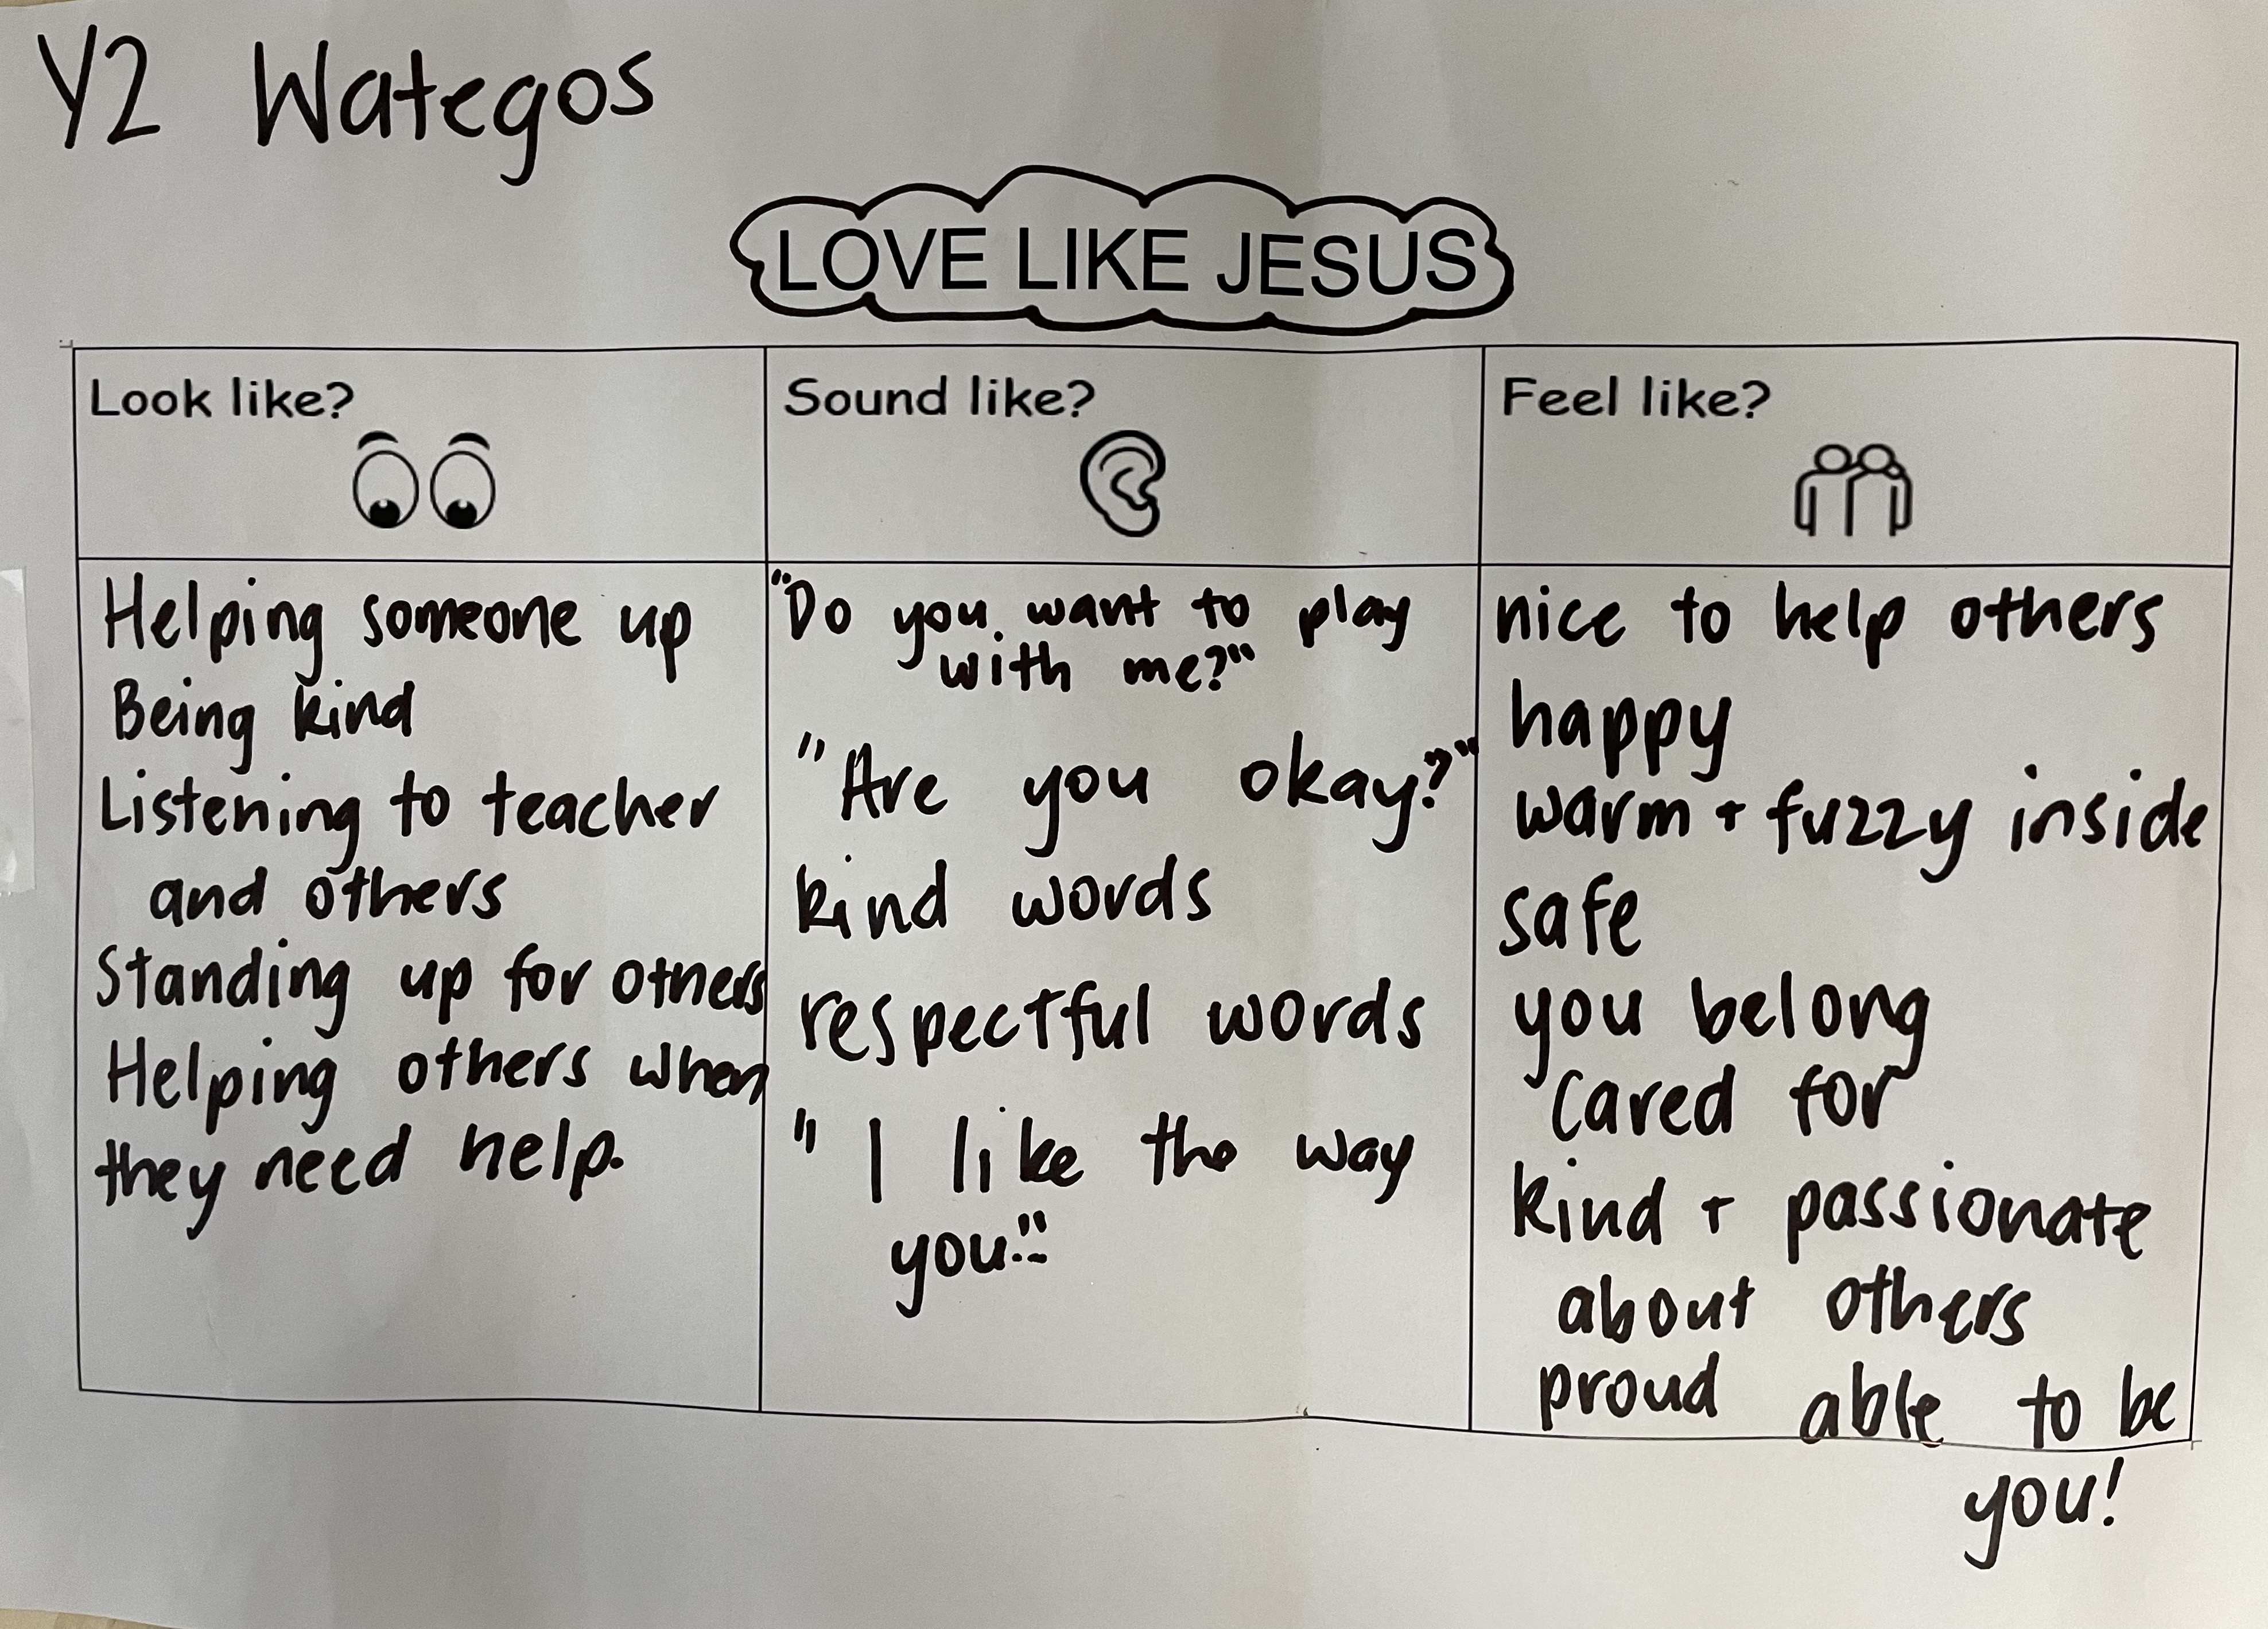 Y2 Wategos
LOVE LIKE JESUS
Look like?
Helping someone up
Being kind
Listening to teacher
and others
Standing up for others
Helping others when
they need help.
Sound like?
"Do you want to play
with me?"
"Are you okay?"
kind words
respectful words
"I like the way
you..."
Feel like?
nice to help others
happy
warm + fuzzy inside
safe
you belong
cared for
kind + passionate
about others
proud able to be
you!